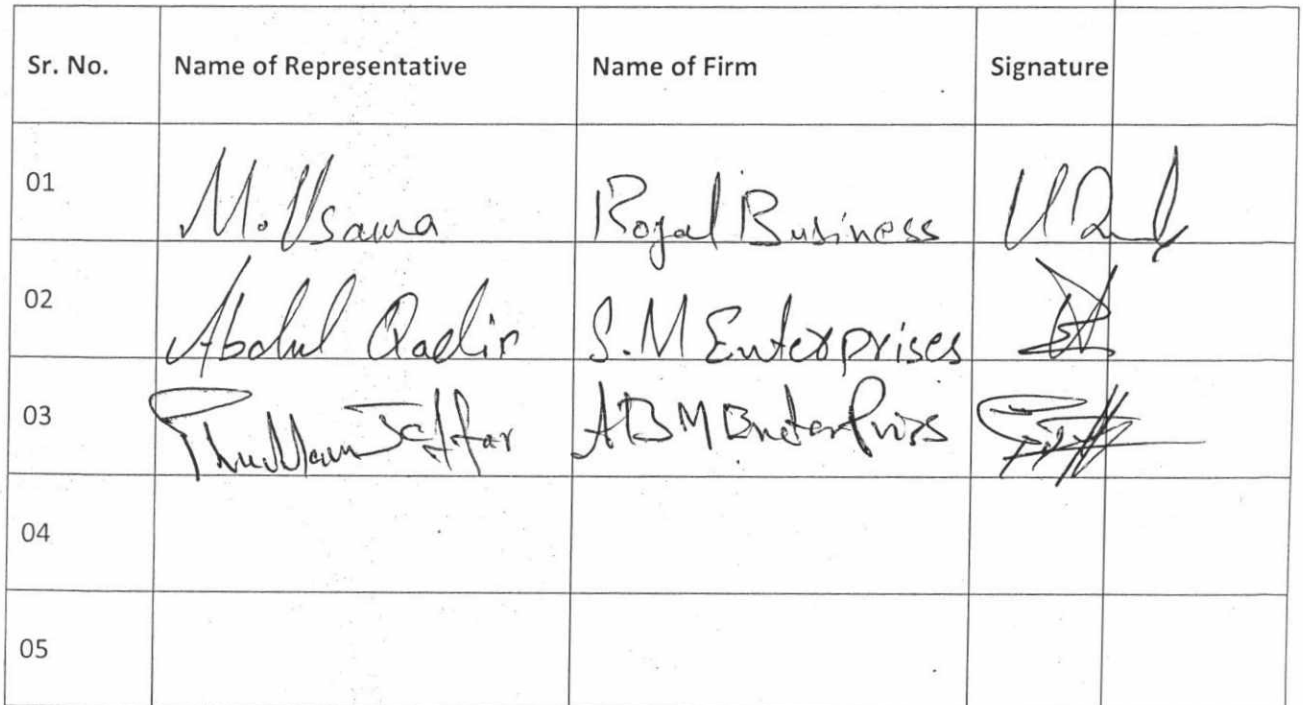 Sr. No. Name of Representative Name of Firm Signature
01 M. Usama Royal Business
02 Abdul Qadir S.M Enterprises
03 Jaffar ABM
04
05